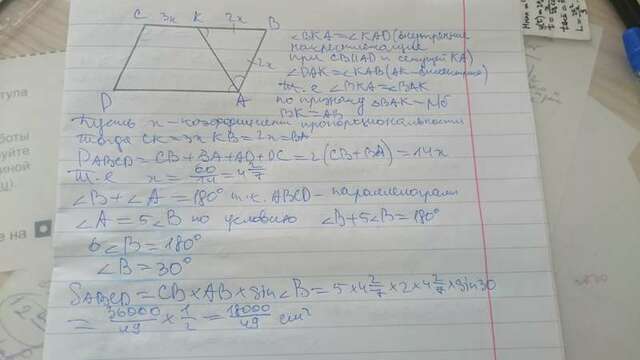 C 3x K 2x B
2x
D A
∠BKA = ∠KAD (внутренние
накрестлежащие
при CB||AD и секущей KA)
∠DAK = ∠KAB (AK - биссектриса)
т.е ∠BKA = ∠BAK
по признаку ΔBAK - р/б
BK = AB
Пусть x - коэффициент пропорциональности
Тогда CK = 3x KB = 2x = BA
PABCD = CB + BA + AD + DC = 2(CB + BA) = 14x
т.е x = 60/14 = 4 2/7
∠B + ∠A = 180° т.к. ABCD - параллелограмм
∠A = 5∠B по условию ∠B + 5∠B = 180°
6∠B = 180°
∠B = 30°
SABCD = CB × AB × sin∠B = 5 × 4 2/7 × 2 × 4 2/7 × sin30
= 36000/49 × 1/2 = 18000/49 см²
тупа
боты
руйте
иной
ц).
е на